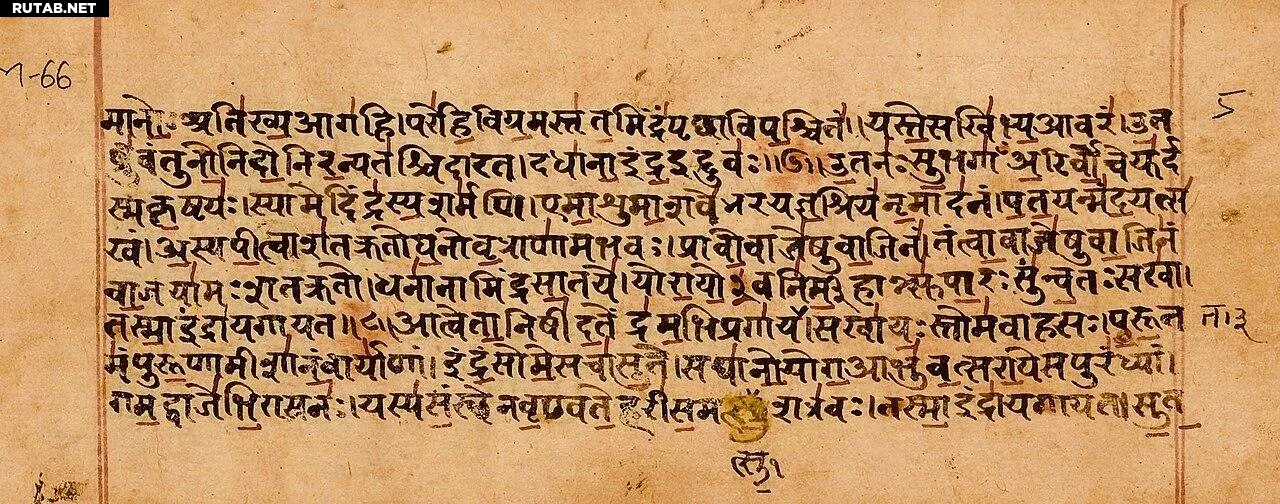 RUTAB.NET
M-66
मानो अतिख्य आगहि। परेहि विग्रमस्तृतमिंद्रं पृछा विपश्चितं। यस्ते सखिभ्य आवरं। उत
ब्रुवंतु नो निदो निरन्यतश्चिदारत। दधाना इंद्र इद्दुवः॥ ७॥ उत नः सुभगाँ अरिर्वोचेयुर्द
स्म कृष्टयः। स्यामेदिंद्रस्य शर्मणि। एमाशुमाशवे भर यज्ञश्रियं नृमादनं। पतयन्मंदयत्स
खं। अस्य पीत्वा शतक्रतो घनो वृत्राणामभवः। प्रावो वाजेषु वाजिनं। तं त्वा वाजेषु वाजिनं
वाजयामः शतक्रतो। धनानामिंद्र सातये। यो रायो३वनिर्म३हान्त्सुपारः सुन्वतः सखा।
तस्मा इंद्राय गायत॥ ८॥ आत्वेता निषीदतेंद्रमभि प्रगायत। सखायः स्तोमवाहसः। पुरूत
मं पुरूणामीशानं वार्याणां। इंद्रं सोमे सचा सुते। स घा नो योग आभुवत्स राये स पुरंध्यां।
गमद्वाजेभिरा स नः। यस्य संस्थे न वृण्वते हरी समत्सु शत्रवः। तस्मा इंद्राय गायत। सुत
5
त।३
त्सु१